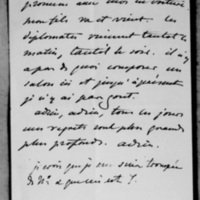 promène avec moi en voiture
mon fils va et vient. les
diplomates viennent tantot le
matin, tantot le soir. il n'y
a pas de quoi composer un
salon ici et jusqu'à présent
je n'y ai pas gout.
adieu, adieu, tous les jours
mes regrets sont plus grands
plus profonds. adieu.
je vois que je me suis trompée
de N° a quoi est